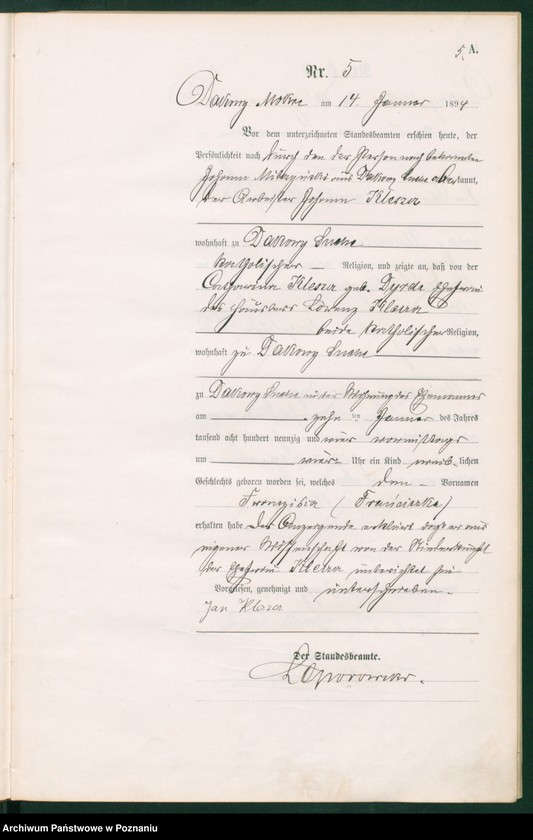 5. A.
Nr. 5
Dakowy Mokre am 14 Januar 1894
Vor dem unterzeichneten Standesbeamten erschien heute, der
Persönlichkeit nach durch den der Person nach bekannten
Johann aus Dakowy Suche kannt,
der Arbeiter Johann Klesza
wohnhaft zu Dakowy Suche
katholischer Religion, und zeigte an, daß von der
Catharina Klesza geb. Dyrda Ehefrau
des Häuslers Lorenz Klesza
beide katholischer Religion,
wohnhaft zu Dakowy Suche
zu Dakowy Suche in der Wohnung des Ehemannes
am zehn ten Januar des Jahres
tausend acht hundert neunzig und vier vormittags
um vier Uhr ein Kind weib- lichen
Geschlechts geboren worden sei, welches den Vornamen
Franziska (Franciszka)
erhalten habe. Der Anzeigende erklärt daß er aus
eigener Wissenschaft von der Niederkunft
der Ehefrau Klesza unterrichtet sei
Vorgelesen, genehmigt und unterschrieben.
Jan Klesza
Der Standesbeamte.